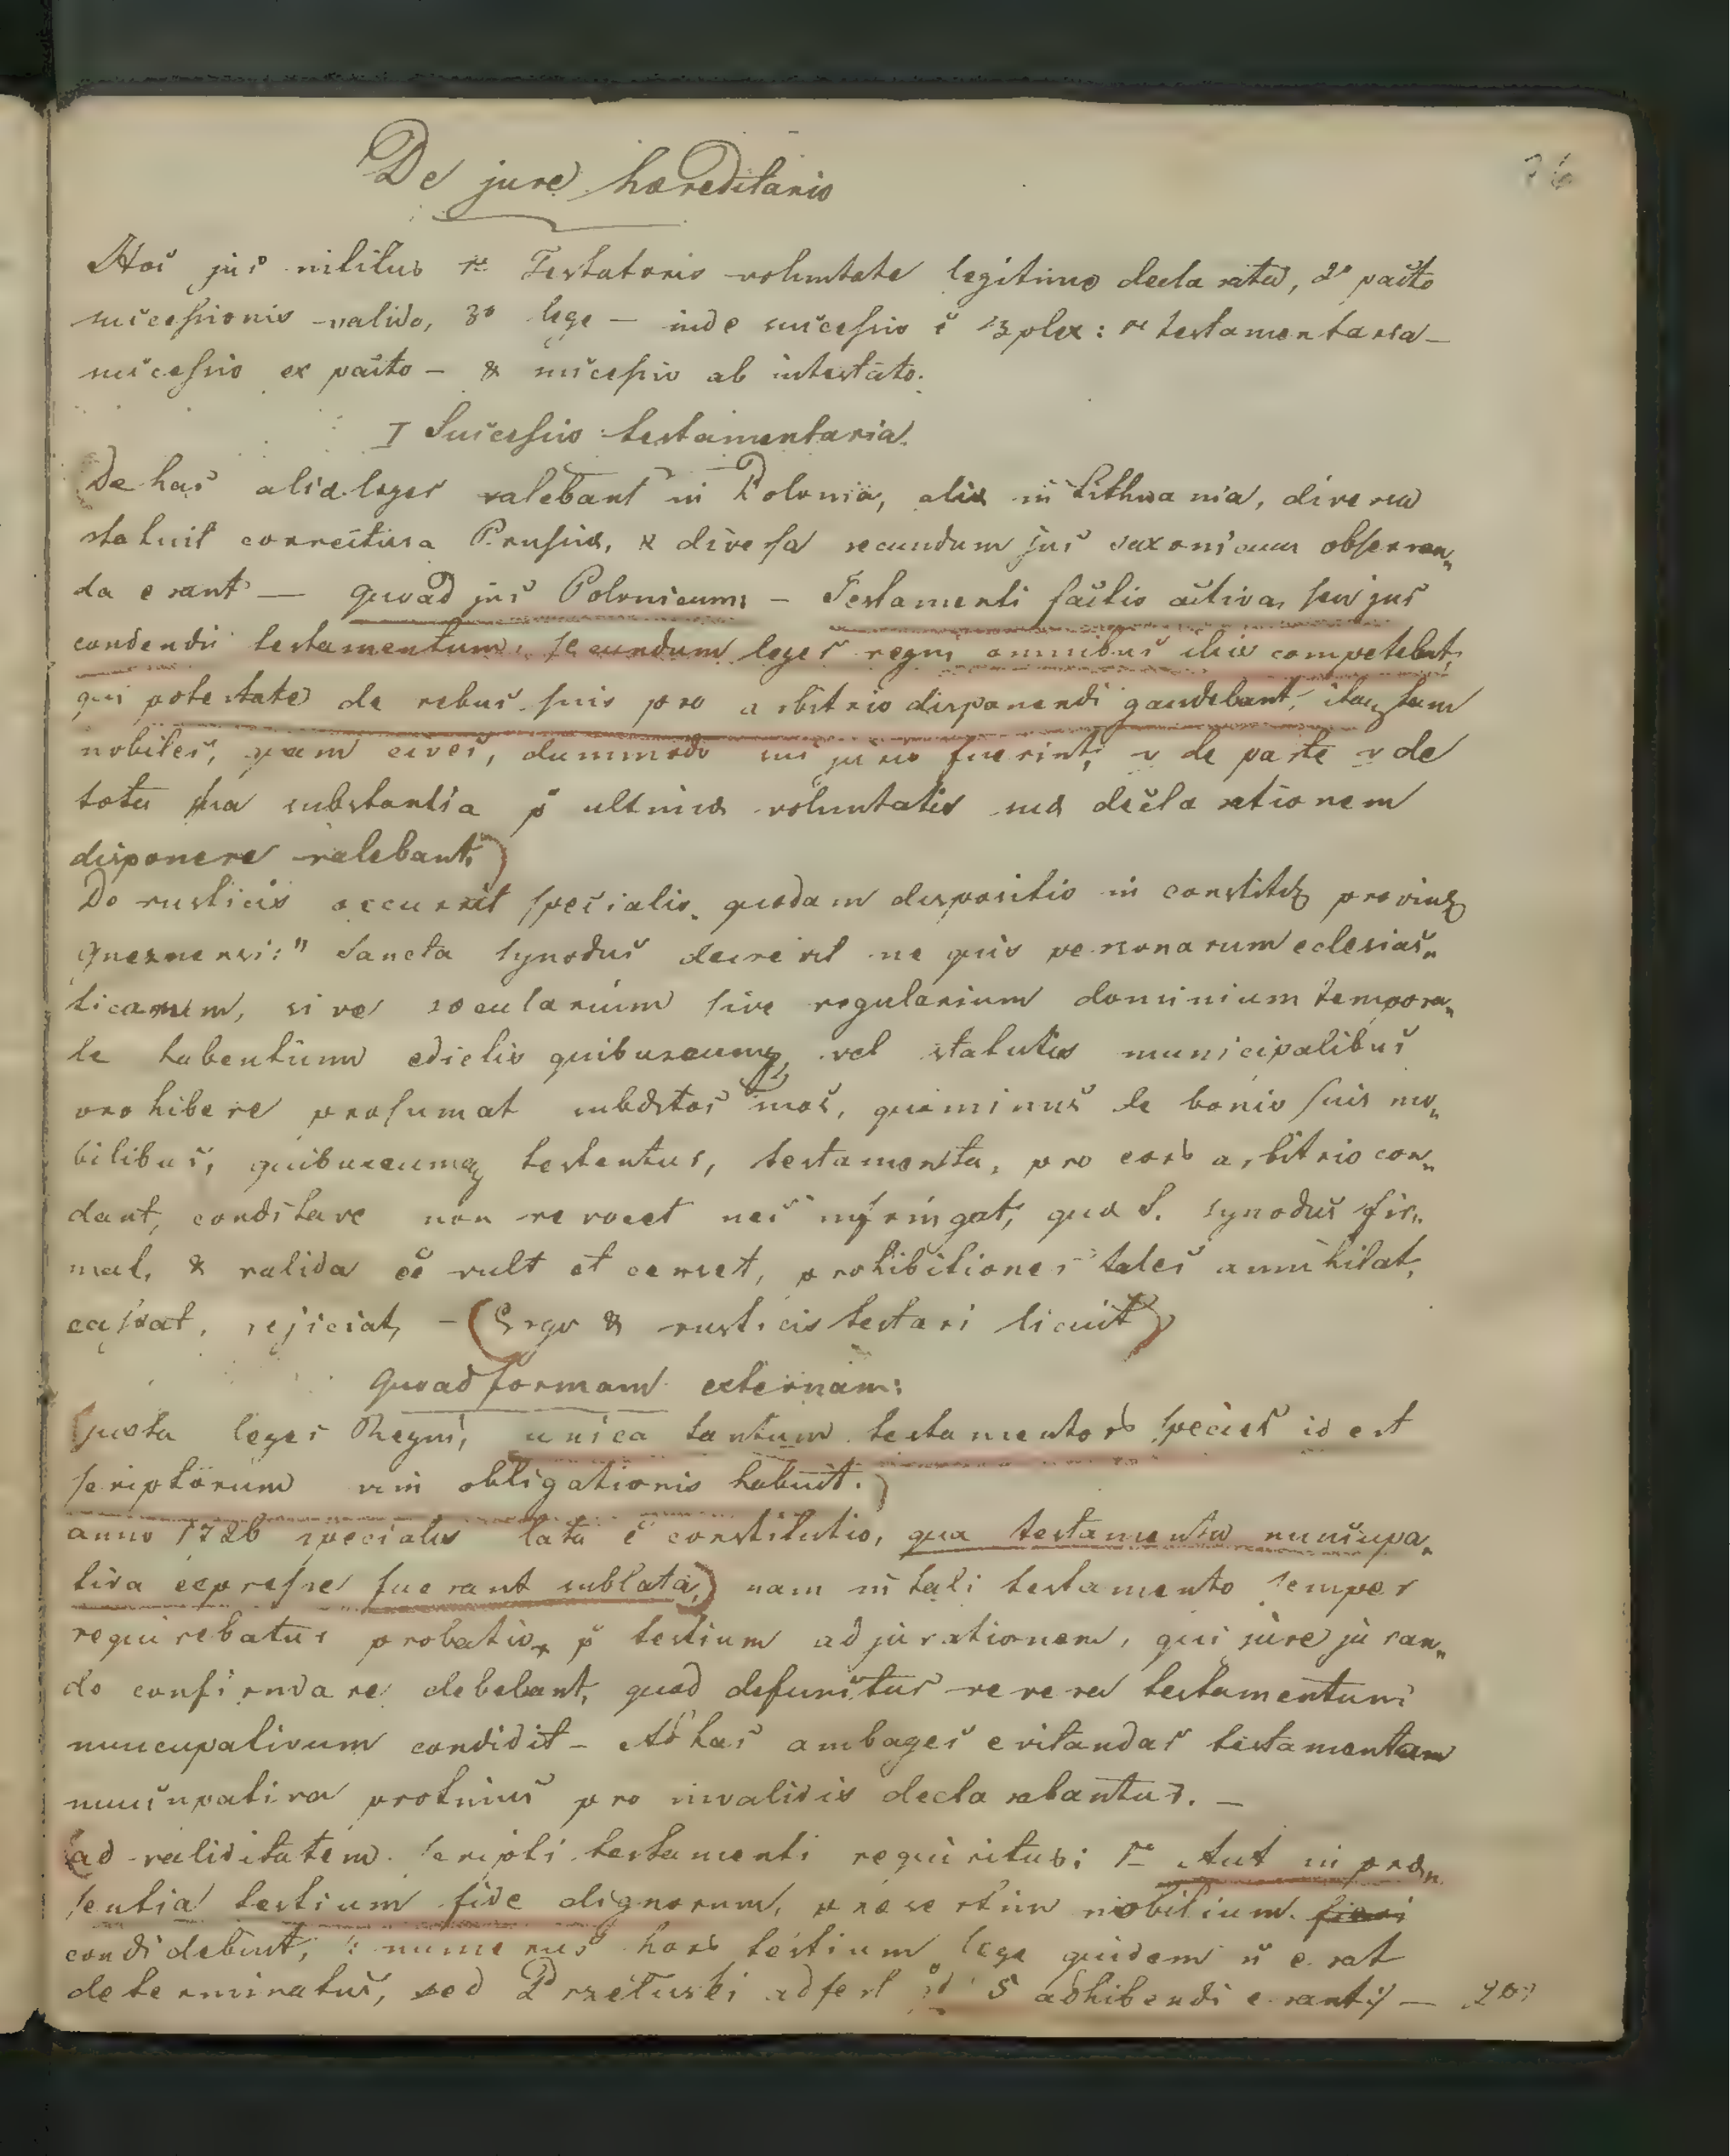 De jure hæreditario
36
Hoc jus nititur 1º Testatoris voluntate legitime declarata, 2º pacto
successionis valido, 3º lege — inde successio ē 3plex: 1º testamentaria —
successio ex pacto — & successio ab intestato.
I Successio testamentaria.
De hac aliæ leges valebant in Polonia, aliæ in Lithuania, diversa
statuit correctura Prussiæ, & diversa secundum jus saxonicum observan„
da erant — quoad jus Polonicum: — Testamenti factio activa, seu jus
condendi testamentum, secundum leges regni omnibus iis competebat,
qui potestate de rebus suis pro arbitrio disponendi gaudebant, itaq tam
nobiles, quam cives, dummodo sui juris fuerint, v de parte v de
tota sua substantia p ultimæ voluntatis suæ declarationem
disponere valebant.)
De rusticis occurrit specialis quædam dispositio in constit provin
gnesnensi: " Sancta Synodus decrevit ne quis personarum eclesias„
ticarum, sive sæcularium sive regularium dominium tempora„
le habentium edictis quibuscunq, vel statutis municipalibus
prohibere præsumat subditos suos, quominus de bonis suis mo„
bilibus, quibuscumq testentur, testamenta, pro eor arbitrio con„
dant, conditave non revocet nec infringat, quæ S. Synodus fir„
mat, & valida ēē vult et censet, prohibitiones tales annihilat,
cassat, rejiciat, — (Ergo & rusticis testari licuit)
Quoad formam externam:
(Juxta leges Regni, unica tantum testamentor species id est
scriptorum vim obligationis habuit.)
anno 1726 specialis lata ē constitutio, qua testamenta nuncupa„
tiva expresse fuerant sublata,) nam in tali testamento semper
requirebatur probatio, p testium adjurationem, qui jure juran„
do confirmare debebant, quod defunctus revera testamentum
nuncupativum condidit — Ad has ambages evitandas testamentam
nuncupativa protinus pro invalidis declarabantur. —
(ad validitatem scripti testamenti requiritur: 1º Aut in præ„
sentia testium fide dignorum, præsertim nobilium
condi debuit, numerus hor testium lege quidem n̄ erat
determinatus, sed Przetuski adfert qd 5 adhibendi erant) — 2º